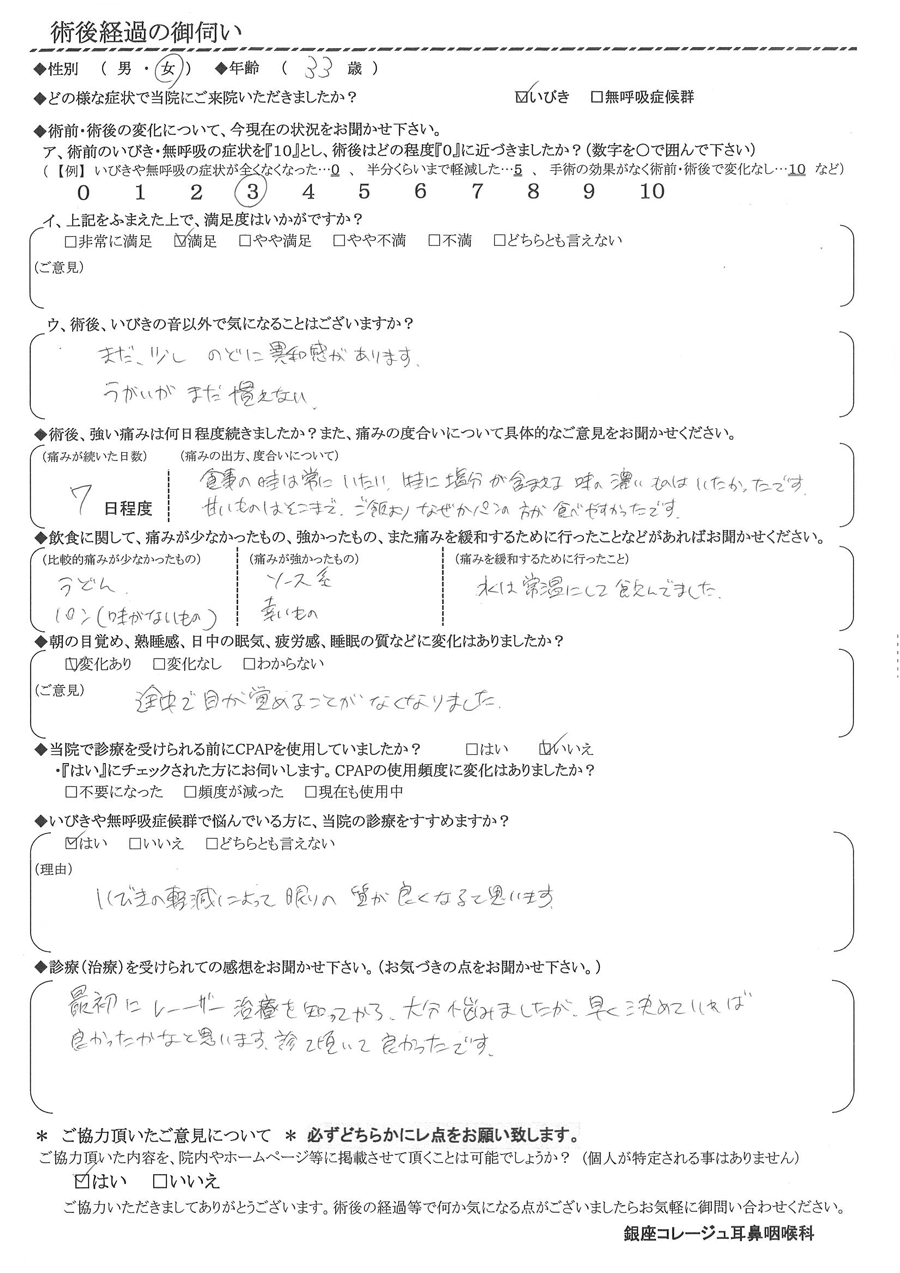 術後経過の御伺い
◆性別 ( 男 ・ 女 ) ◆年齢 ( 33 歳 )
◆どの様な症状で当院にご来院いただきましたか? ☑いびき □無呼吸症候群
◆術前・術後の変化について、今現在の状況をお聞かせ下さい。
ア、術前のいびき・無呼吸の症状を『10』とし、術後はどの程度『0』に近づきましたか?(数字を〇で囲んで下さい)
(【例】いびきや無呼吸の症状が全くなくなった…0 、 半分くらいまで軽減した…5 、 手術の効果がなく術前・術後で変化なし…10 など)
0 1 2 3 4 5 6 7 8 9 10
イ、上記をふまえた上で、満足度はいかがですか?
□非常に満足 ☑満足 □やや満足 □やや不満 □不満 □どちらとも言えない
(ご意見)
ウ、術後、いびきの音以外で気になることはございますか?
まだ、少し のどに異和感があります。
うがいが まだ 慣えない。
◆術後、強い痛みは何日程度続きましたか?また、痛みの度合いについて具体的なご意見をお聞かせください。
(痛みが続いた日数) (痛みの出方、度合いについて)
7 日程度
食事の時は常に いたい。時に塩分が含まれる 味の濃いものは いたかったです。
甘いものはそこまで。ご飯より なぜかパンの方が 食べやすかったです。
◆飲食に関して、痛みが少なかったもの、強かったもの、また痛みを緩和するために行ったことなどがあればお聞かせください。
(比較的痛みが少なかったもの) (痛みが強かったもの) (痛みを緩和するために行ったこと)
うどん ソース系 水は常温にして飲んでました。
パン(味がないもの) 辛いもの
◆朝の目覚め、熟睡感、日中の眠気、疲労感、睡眠の質などに変化はありましたか?
☑変化あり □変化なし □わからない
(ご意見)
途中で目が覚めることがなくなりました。
◆当院で診療を受けられる前にCPAPを使用していましたか? □はい ☑いいえ
・『はい』にチェックされた方にお伺いします。CPAPの使用頻度に変化はありましたか?
□不要になった □頻度が減った □現在も使用中
◆いびきや無呼吸症候群で悩んでいる方に、当院の診療をすすめますか?
☑はい □いいえ □どちらとも言えない
(理由)
いびきの軽減によって眠りの 質が良くなると思います。
◆診療(治療)を受けられての感想をお聞かせ下さい。(お気づきの点をお聞かせ下さい。)
最初に レーザー治療を知ってから、大分悩みましたが、早く決めていれば
良かったかなと思います。診て頂いて 良かったです。
＊ ご協力頂いたご意見について ＊ 必ずどちらかにレ点をお願い致します。
ご協力頂いた内容を、院内やホームページ等に掲載させて頂くことは可能でしょうか? (個人が特定される事はありません)
☑はい □いいえ
ご協力いただきましてありがとうございます。術後の経過等で何か気になる点がございましたらお気軽に御問い合わせください。
銀座コレージュ耳鼻咽喉科